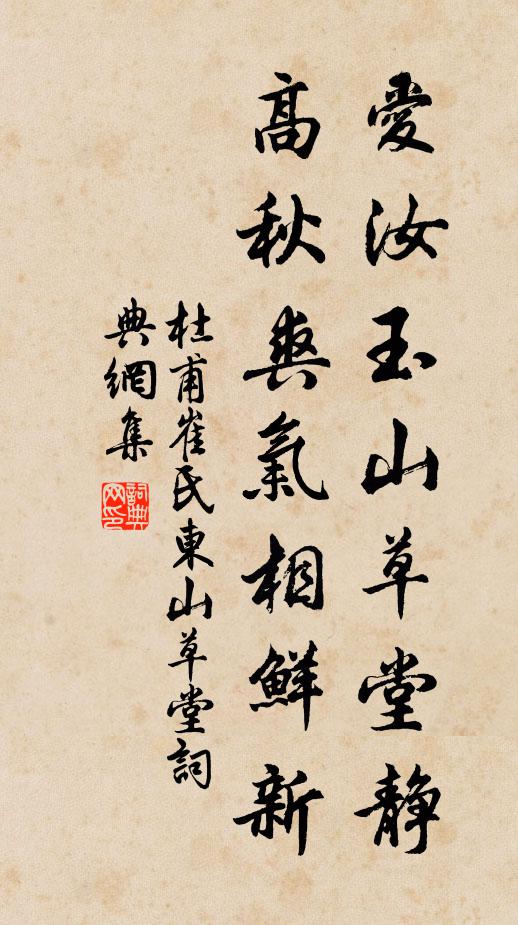 愛汝玉山草堂静
高秋爽氣相鮮新
杜甫崔氏東山草堂詞
典網集
詞典网印